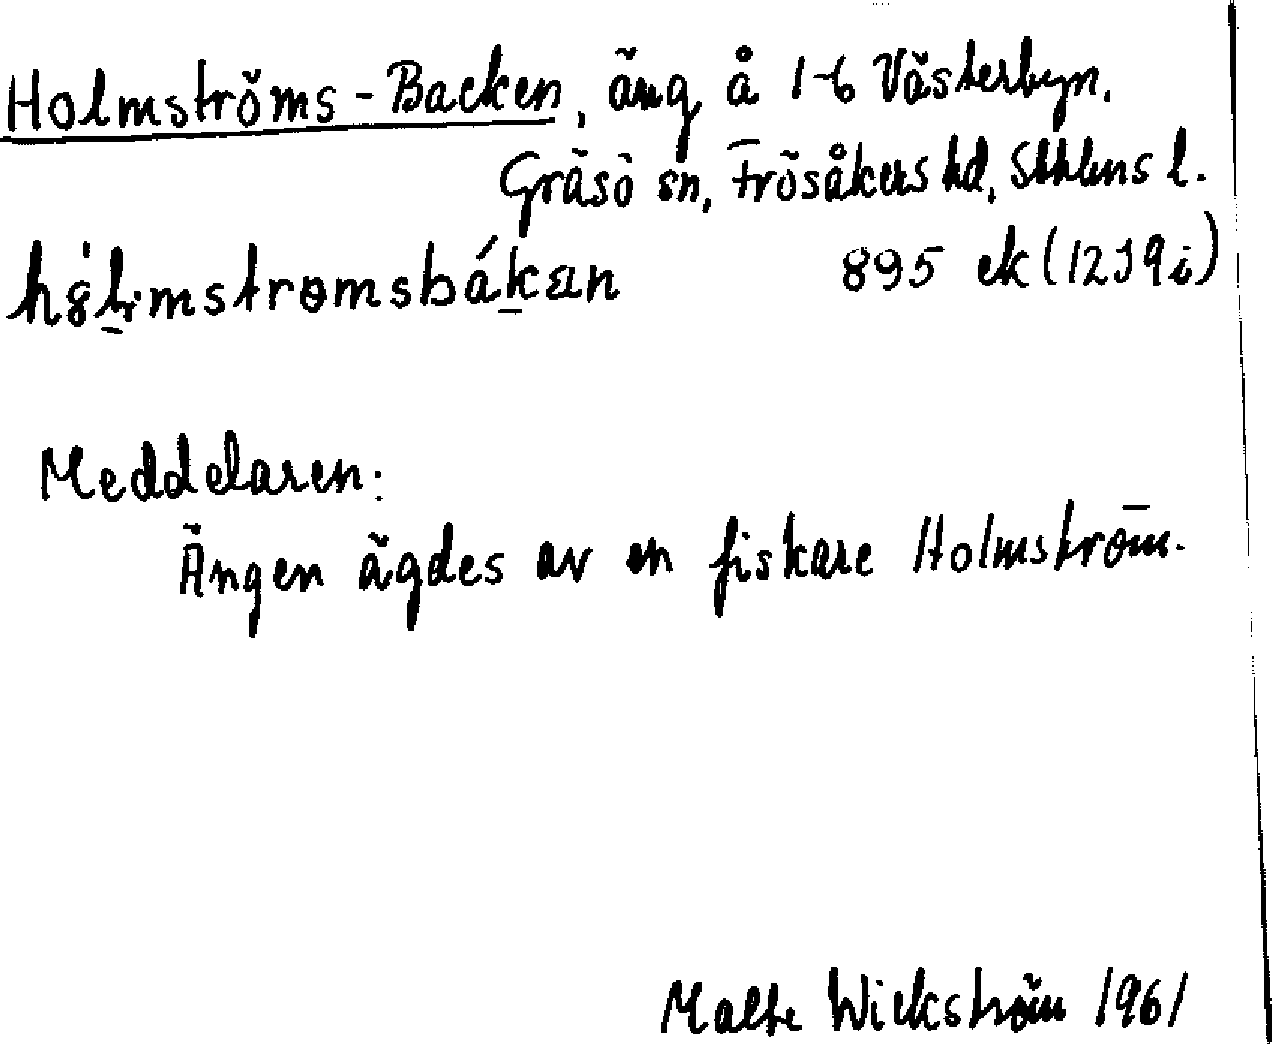 Holmströms-Backen, äng å 1-6 Västerbyn.
Gräsö sn, Frösåkers hd, Sthlms l.
895 ek (1239i)
Meddelaren:
Ängen ägdes av en fiskare Holmström.
Malte Wickström 1961